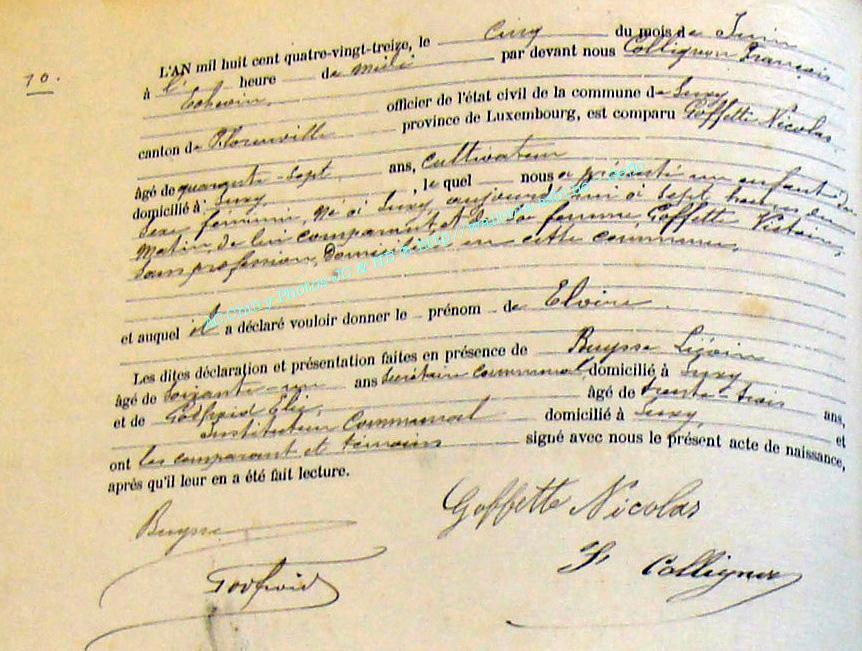 10.
L'AN mil huit cent quatre-vingt-treize, le cinq du mois de Juin
à l' heure de midi par devant nous Collignon François
Echevin, officier de l'état civil de la commune de Suxy
canton de Florenville province de Luxembourg, est comparu Goffette Nicolas
âgé de quarante-sept ans, Cultivateur
domicilié à Suxy, le quel nous a présenté un enfant du
sexe féminin, né à Suxy, aujourd'hui à sept heures du
matin, de lui comparant et de sa femme Goffette Victoire,
sans profession, domiciliés en cette commune,
et auquel il a déclaré vouloir donner le prénom de Elvire
Les dites déclaration et présentation faites en présence de Buysse
âgé de soixante-un ans Secrétaire communal, domicilié à Suxy
et de Godfroid Elie, âgé de trente-trois ans,
Instituteur Communal domicilié à Suxy, et
ont les comparant et témoins signé avec nous le présent acte de naissance,
après qu'il leur en a été fait lecture.
Buysse
Goffette Nicolas
Godfroid
F Collignon